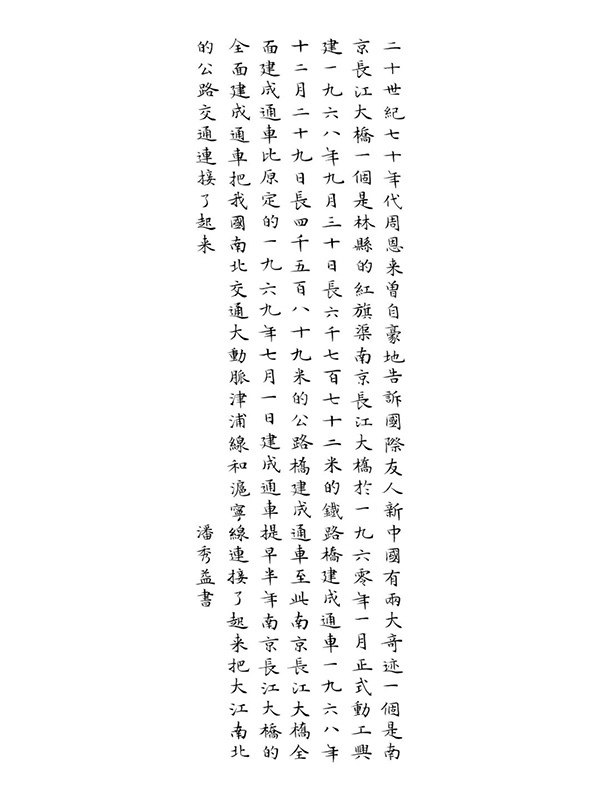 二十世紀七十年代周恩来曾自豪地告訴國際友人新中國有兩大奇迹一個是南
京長江大橋一個是林縣的紅旗渠南京長江大橋於一九六零年一月正式動工興
建一九六八年九月三十日長六千七百七十二米的鐵路橋建成通車一九六八年
十二月二十九日長四千五百八十九米的公路橋建成通車至此南京長江大橋全
面建成通車比原定的一九六九年七月一日建成通車提早半年南京長江大橋的
全面建成通車把我國南北交通大動脈津浦線和滬寧線連接了起来把大江南北
的公路交通連接了起来
潘秀益書